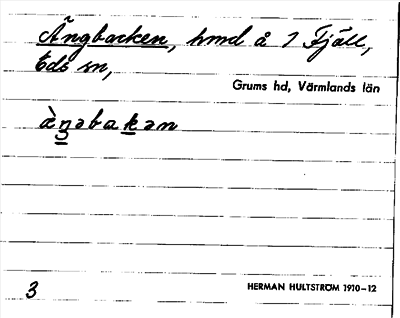 Ängbacken, hmd å 1 Fjäll,
Eds sn,
Grums hd, Värmlands län
3
HERMAN HULTSTRÖM 1910–12